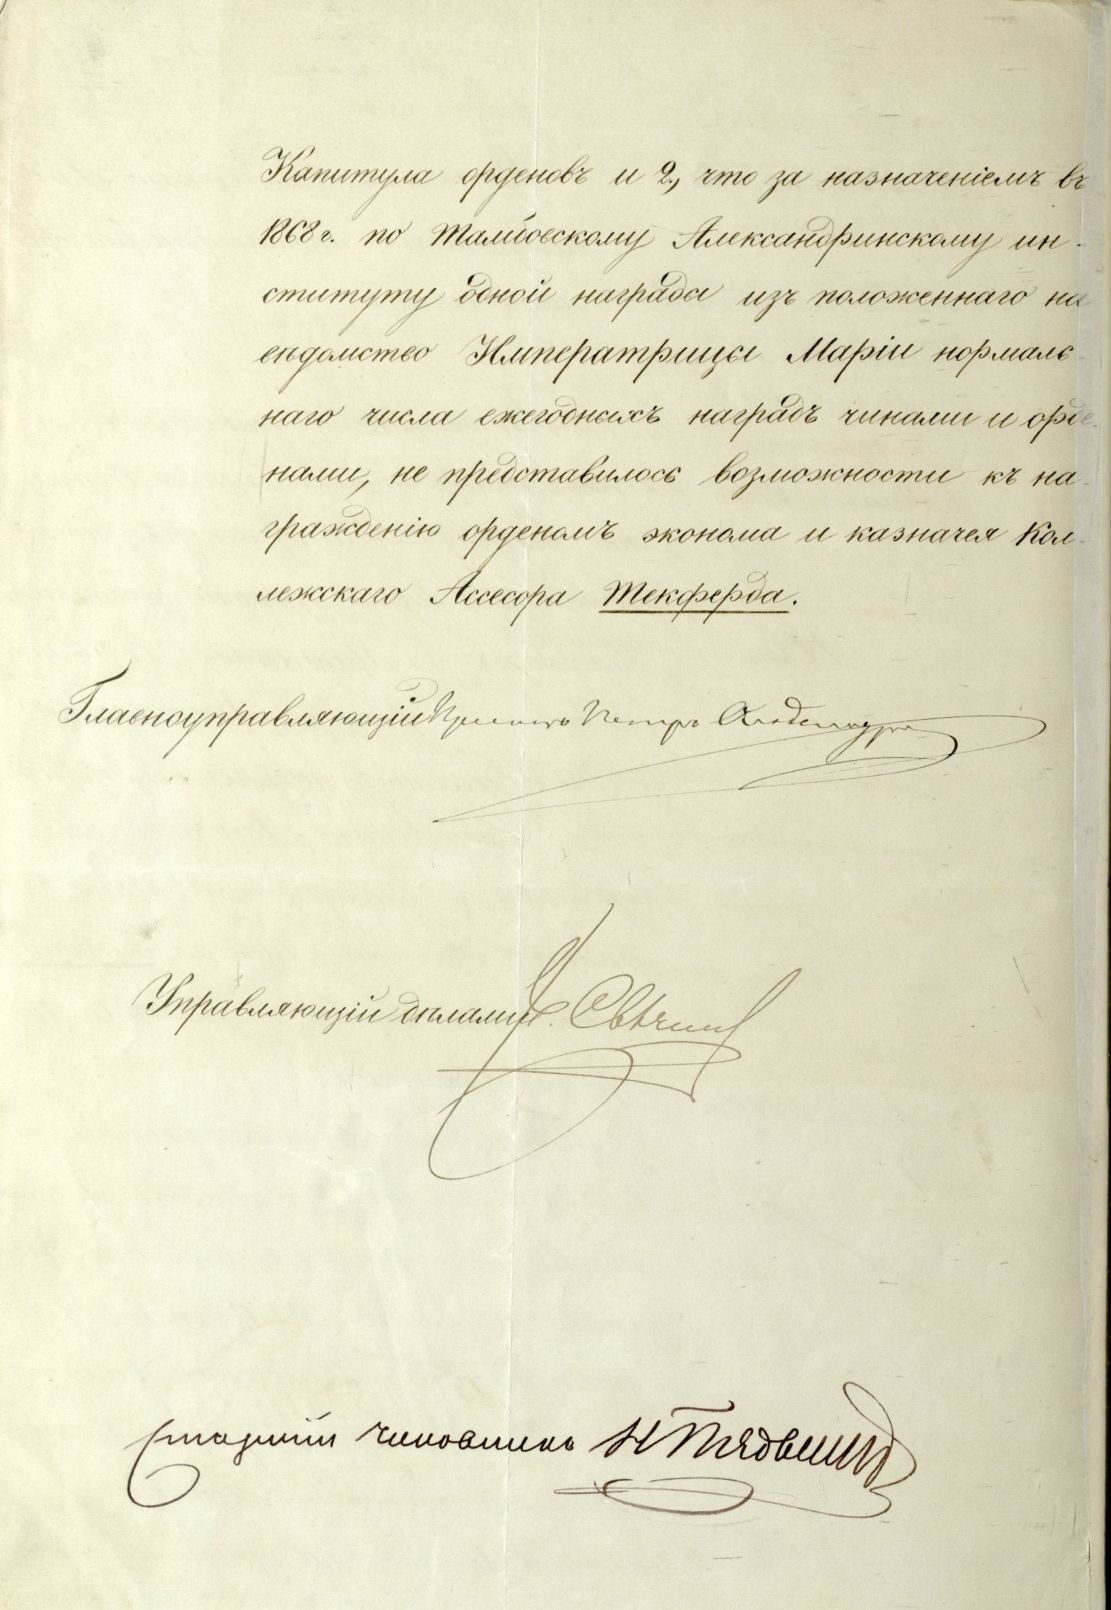 Капитула орденовъ и 2., что за назначеніемъ въ
1868 г. по Тамбовскому Александринскому ин-
ституту одной награды изъ положеннаго на
вѣдомство Императрицы Маріи нормаль-
наго числа ежегодныхъ наградъ чинами и орде-
нами, не представилось возможности къ на-
гражденію орденомъ эконома и казначея Кол-
лежскаго Ассесора Текферда.
Главноуправляющій Принцъ Петръ Ольденбургскій
Управляющій дѣлами Свѣчинъ
Старшій чиновникъ Н